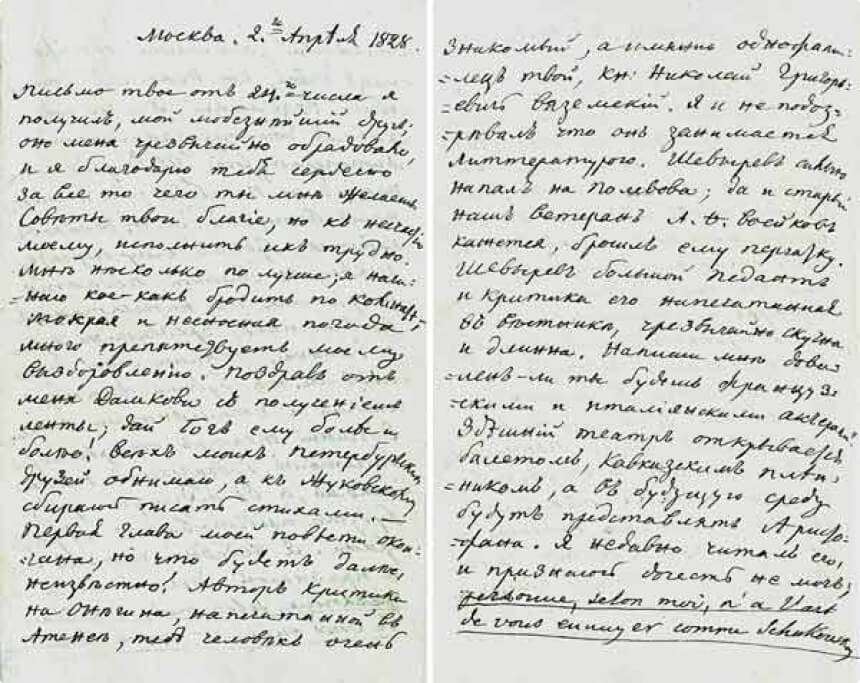 Москва. 2.го Апрѣля 1828.
Письмо твое отъ 24.го числа я
получилъ, мой любезнѣйшій другъ;
оно меня чрезвычайно обрадовало,
и я благодарю тебя сердечно
за все то чего ты мнѣ желаешь.
Совѣты твои благіе, но къ несчастію
моему, исполнить ихъ трудно.
Мнѣ нѣсколько по лучше; я начи-
=наю кое-какъ бродить по комнатѣ;
мокрая и несносная погода
много препятствуетъ моему
выздоровленію. Поздравь отъ
меня Дашкова съ полученіемъ
ленты; дай Богъ ему болѣе и
болѣе! Всѣхъ моихъ Петербургскихъ
друзей обнимаю, а къ Жуковскому
сбираюсь писать стихами. —
Первая глава моей повѣсти окон-
=чена, но что будетъ далѣе,
неизвѣстно! Авторъ критики
на Онѣгина, напечатанной въ
Атенеѣ, тебѣ человѣкъ очень
знакомый, а именно однофами-
=лецъ твой, кн: Николай Григорь-
=евичь Вяземскій. Я и не подоз-
=рѣвалъ что онъ занимается
литтературою. Шевыревъ сильно
напалъ на Полевова; да и старый
нашъ ветеранъ А. Ѳ. Воейковъ
кажется, бросилъ ему перчатку.
Шевыревъ большой педантъ
и критика его напечатанная
въ вѣстникѣ, чрезвычайно скучна
и длинна. Напиши мнѣ дово-
=ленъ-ли ты будешь француз-
=скими и италіянскими актерами?
Здѣшній театръ открывается
балетомъ, Кавказскимъ плѣн-
=никомъ, а въ будущую среду
будутъ представлять Аристо-
=фана. Я недавно читалъ его,
и признаюсь дочесть не могъ;
personne, selon moi, n'a l'art
de vous ennuyer comme Schakowskoy